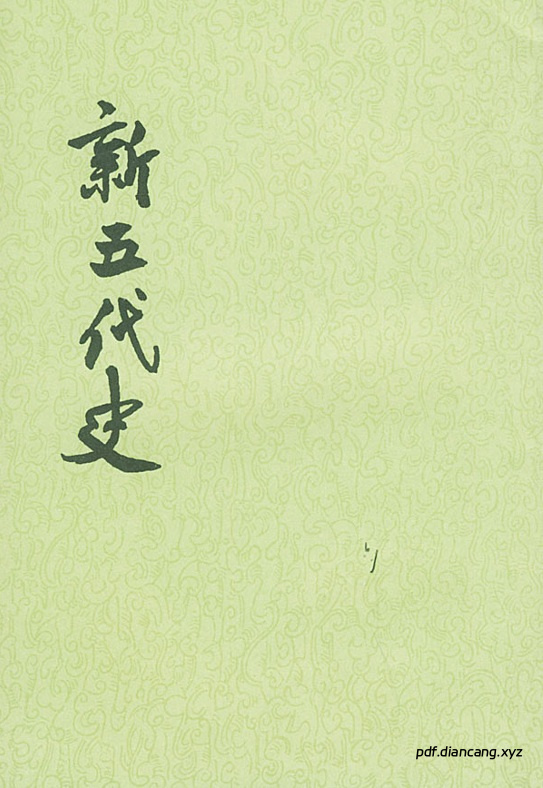 新五代史
pdf.diancang.xyz